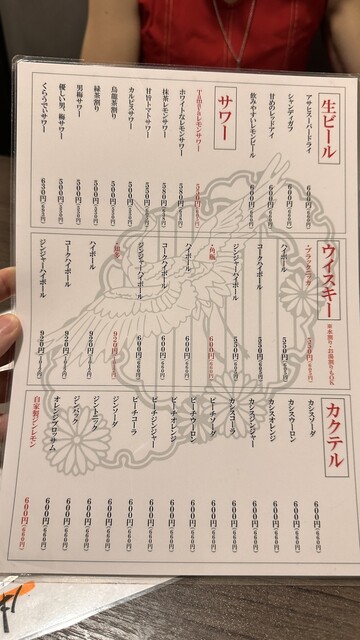 生ビール
アサヒスーパードライ
シャンディガフ 600円(660円)
甘めのレッドアイ 600円(660円)
飲みやすいレモンビール 600円(660円)
サワー
ホワイトなレモンサワー 580円
抹茶レモンサワー 580円
甘旨トマトサワー 580円
カルピスサワー 500円
烏龍茶割り 500円
緑茶割り 500円
男梅サワー 500円
優しい男、梅サワー 500円
くらうでぃサワー 630円
ウイスキー
※水割り・お湯割りもOK
・ブラックニッカ 550円
ハイボール 550円
コークハイボール 550円
ジンジャーハイボール 550円
・角瓶 600円(660円)
ハイボール 600円(660円)
コークハイボール 600円(660円)
ジンジャーハイボール 600円(660円)
ハイボール 920円
コークハイボール 920円
ジンジャーハイボール 920円
カクテル
カシスソーダ 600円(660円)
カシスウーロン 600円(660円)
カシスオレンジ 600円(660円)
カシスジンジャー 600円(660円)
カシスコーラ 600円(660円)
ピーチソーダ 600円(660円)
ピーチウーロン 600円(660円)
ピーチオレンジ 600円(660円)
ピーチジンジャー 600円(660円)
ピーチコーラ 600円(660円)
ジンソーダ 600円(660円)
ジントニック 600円(660円)
ジンバック 600円(660円)
オレンジブロッサム 600円(660円)
自家製ジンレモン 600円(660円)